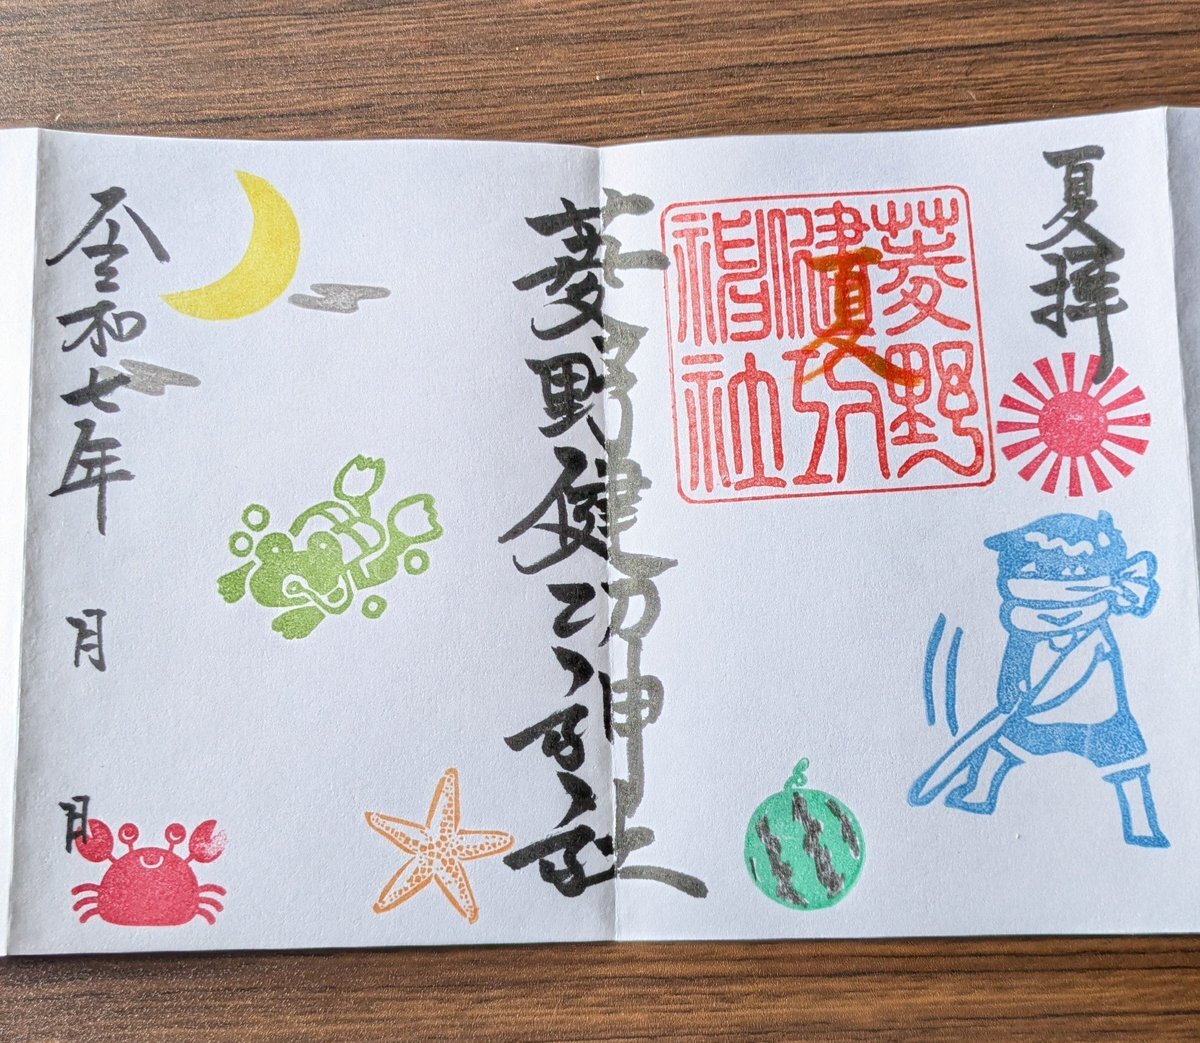 夏拝
菱野
健功
神社
夏
菱野健功神社
令和七年 月 日